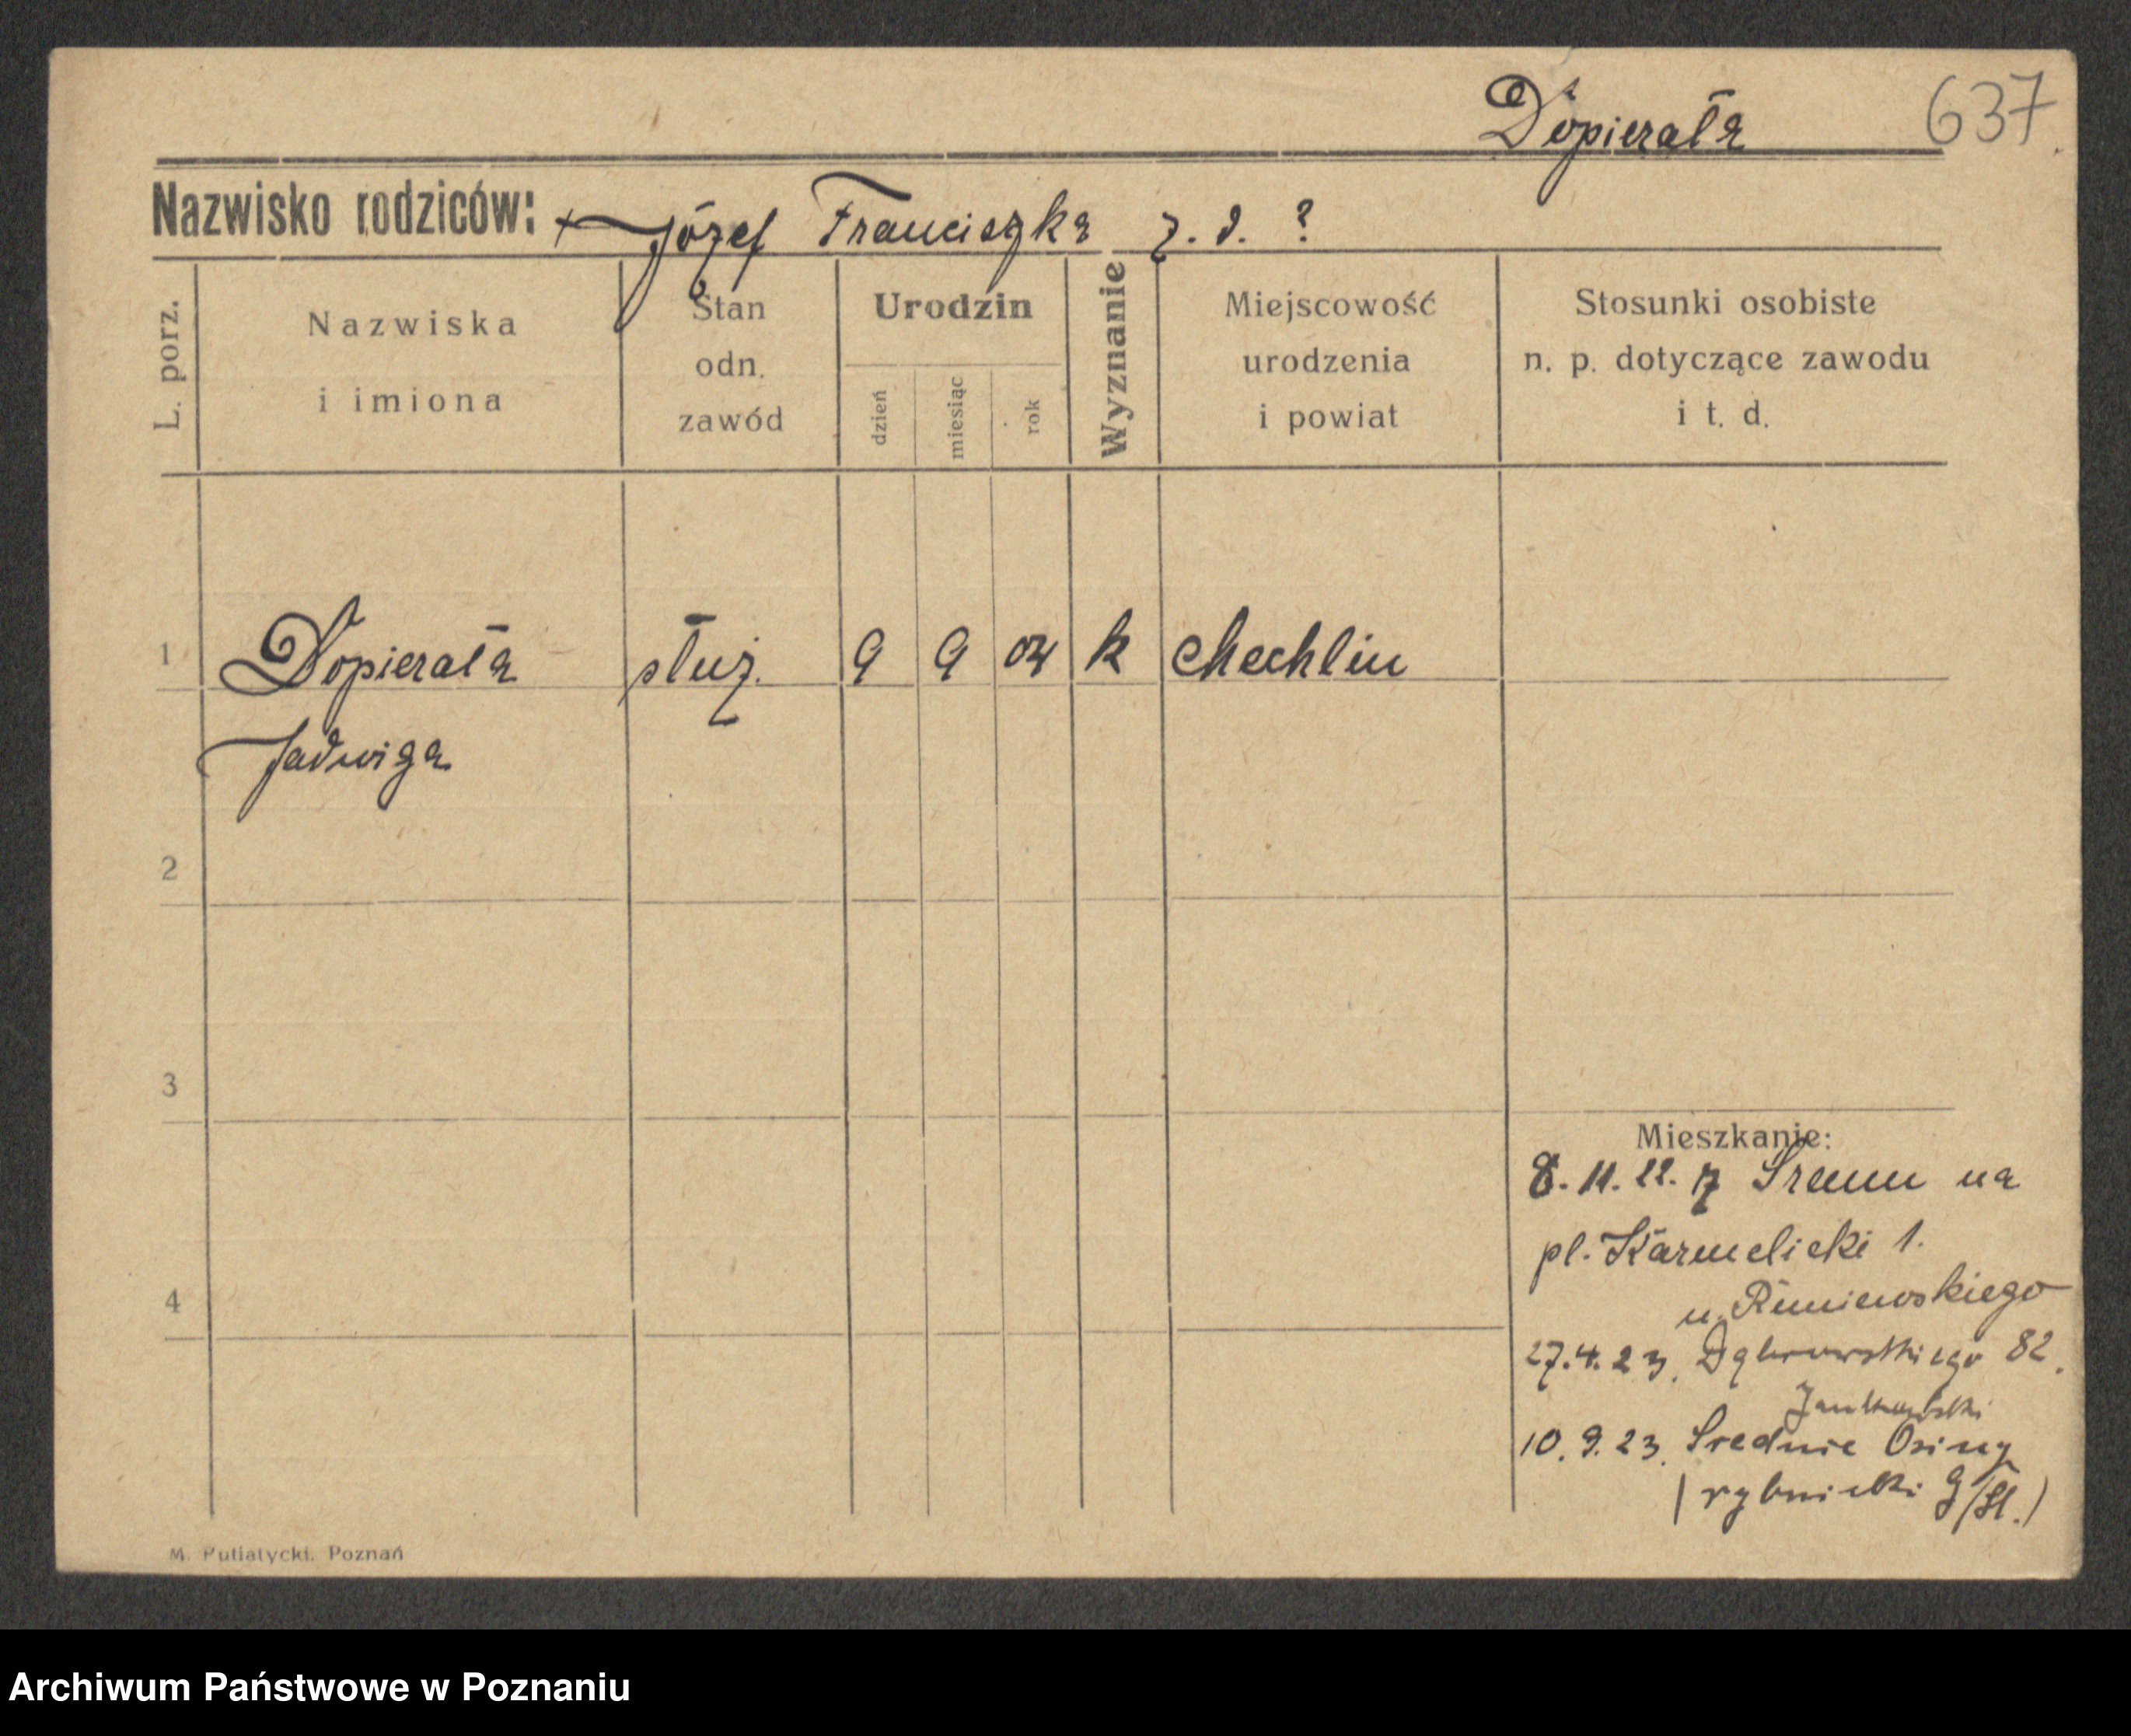 Dopierała 637
Nazwisko rodziców: + Józef Franciszka z. d. ?
L. porz.
Nazwiska
i imiona
Stan
odn.
zawód
Urodzin
dzień
miesiąc
rok
Wyznanie
Miejscowość
urodzenia
i powiat
Stosunki osobiste
n. p. dotyczące zawodu
i t. d.
1 Dopierała służ. 9 9 04 k Mechlin
Jadwiga
2
3
4
Mieszkanie:
8. 11. 22. z Śremu na
pl. Karmelicki 1.
u.
27. 4. 23. Dąbrowskiego 82.
Jankowski
10. 9. 23. Srednie Osiny
(rybnicki G/Śl.)
M. Putiatycki. Poznań
Archiwum Państwowe w Poznaniu